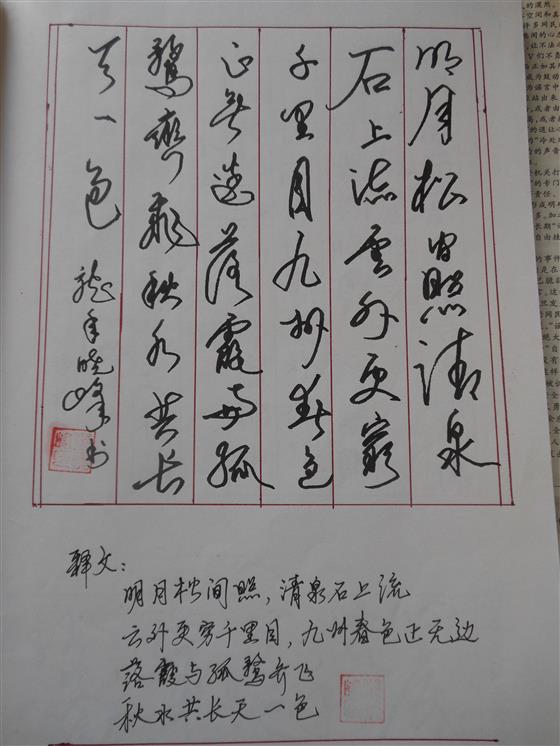 明月松间照清泉
石上流雲外更窮
千里目九州春色
正無邊落霞与孤
鶩齊飛秋水共长
天一色
龍年晓峰书
释文：
明月松间照，清泉石上流
云外更穷千里目，九州春色正无边
落霞与孤鹜齐飞
秋水共长天一色